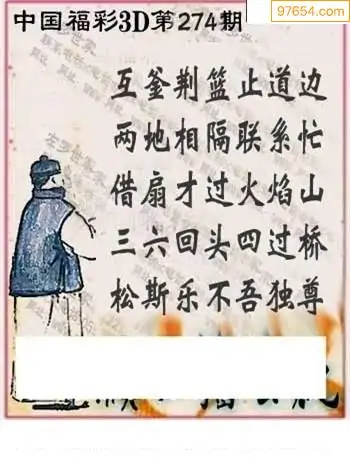 97654.com
中国福彩3D第274期
互釜荆篮止道边
两地相隔联系忙
借扇才过火焰山
三六回头四过桥
松斯乐不吾独尊